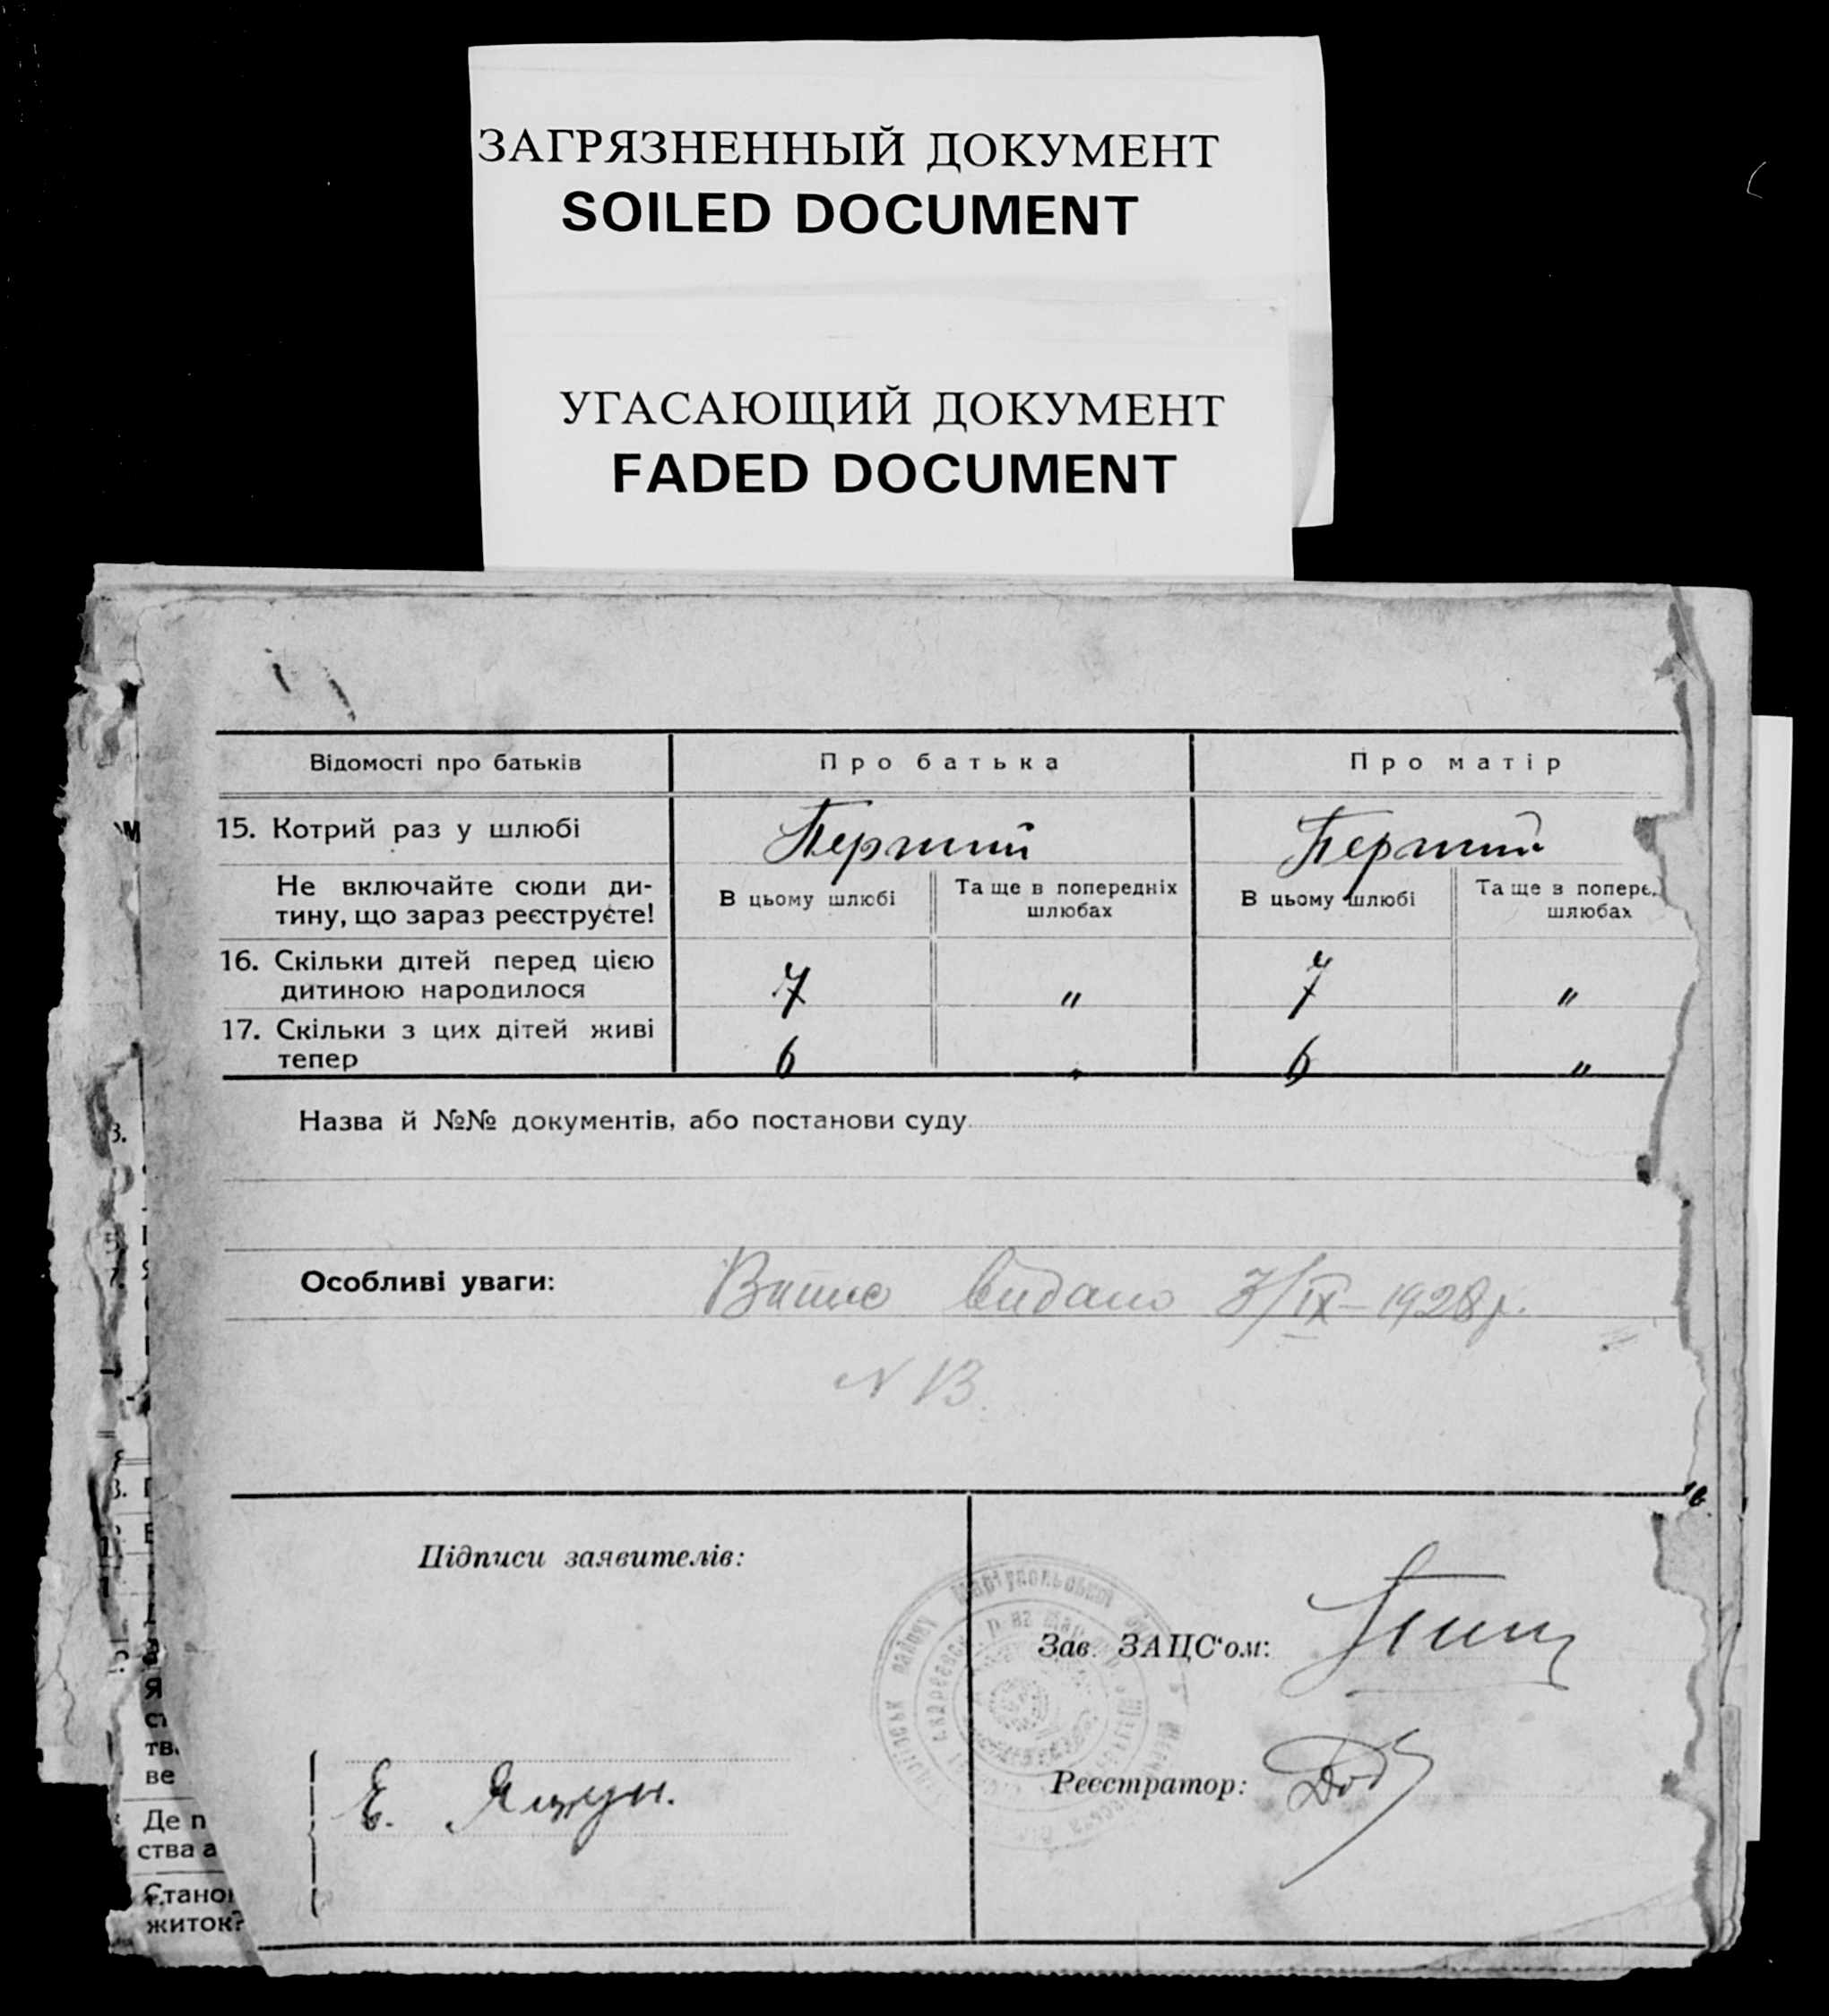 ЗАГРЯЗНЕННЫЙ ДОКУМЕНТ
SOILED DOCUMENT
УГАСАЮЩИЙ ДОКУМЕНТ
FADED DOCUMENT
Відомості про батьків
Про батька
Про матір
15. Котрий раз у шлюбі
Перший
Перший
Не включайте сюди ди-
тину, що зараз реєструєте!
В цьому шлюбі
Та ще в попередніх
шлюбах
В цьому шлюбі
Та ще в попере
шлюбах
16. Скільки дітей перед цією
дитиною народилося
7
"
7
"
17. Скільки з цих дітей живі
тепер
6
6
"
Назва й №№ документів, або постанови суду
Особливі уваги:
Випис видано 3/IX-1928 р.
N 13
Підписи заявителів:
Зав. ЗАЦС'ом:
Реєстратор:
Е.
тв
ве
Де п
ства а
Стано
житок?